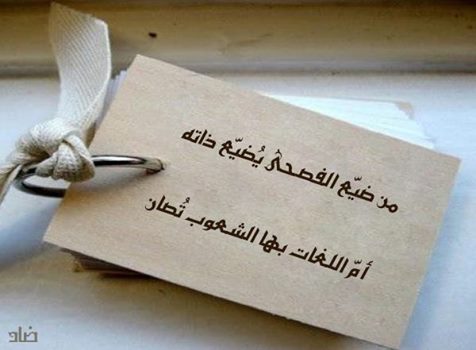 من ضيّع الفصحىٰ يُضيّع ذاته
أمّ اللغات بها الشعوب تُصان
ضاد